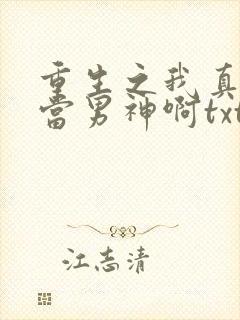 重生之我真
当男神啊txt
江志清